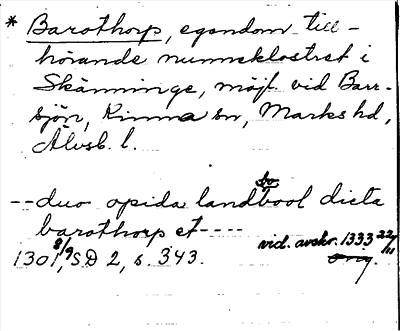 * Barothorp, egendom till-
hörande nunneklostret i
Skänninge, möjl. vid Barr-
sjön, Kinna sn, Marks hd,
Älvsb. l.
bo
--duo opida landbool dicta
barothorp et----
vid. avskr. 1333 22/11
1301 8/9, SD 2, s. 343. orig.